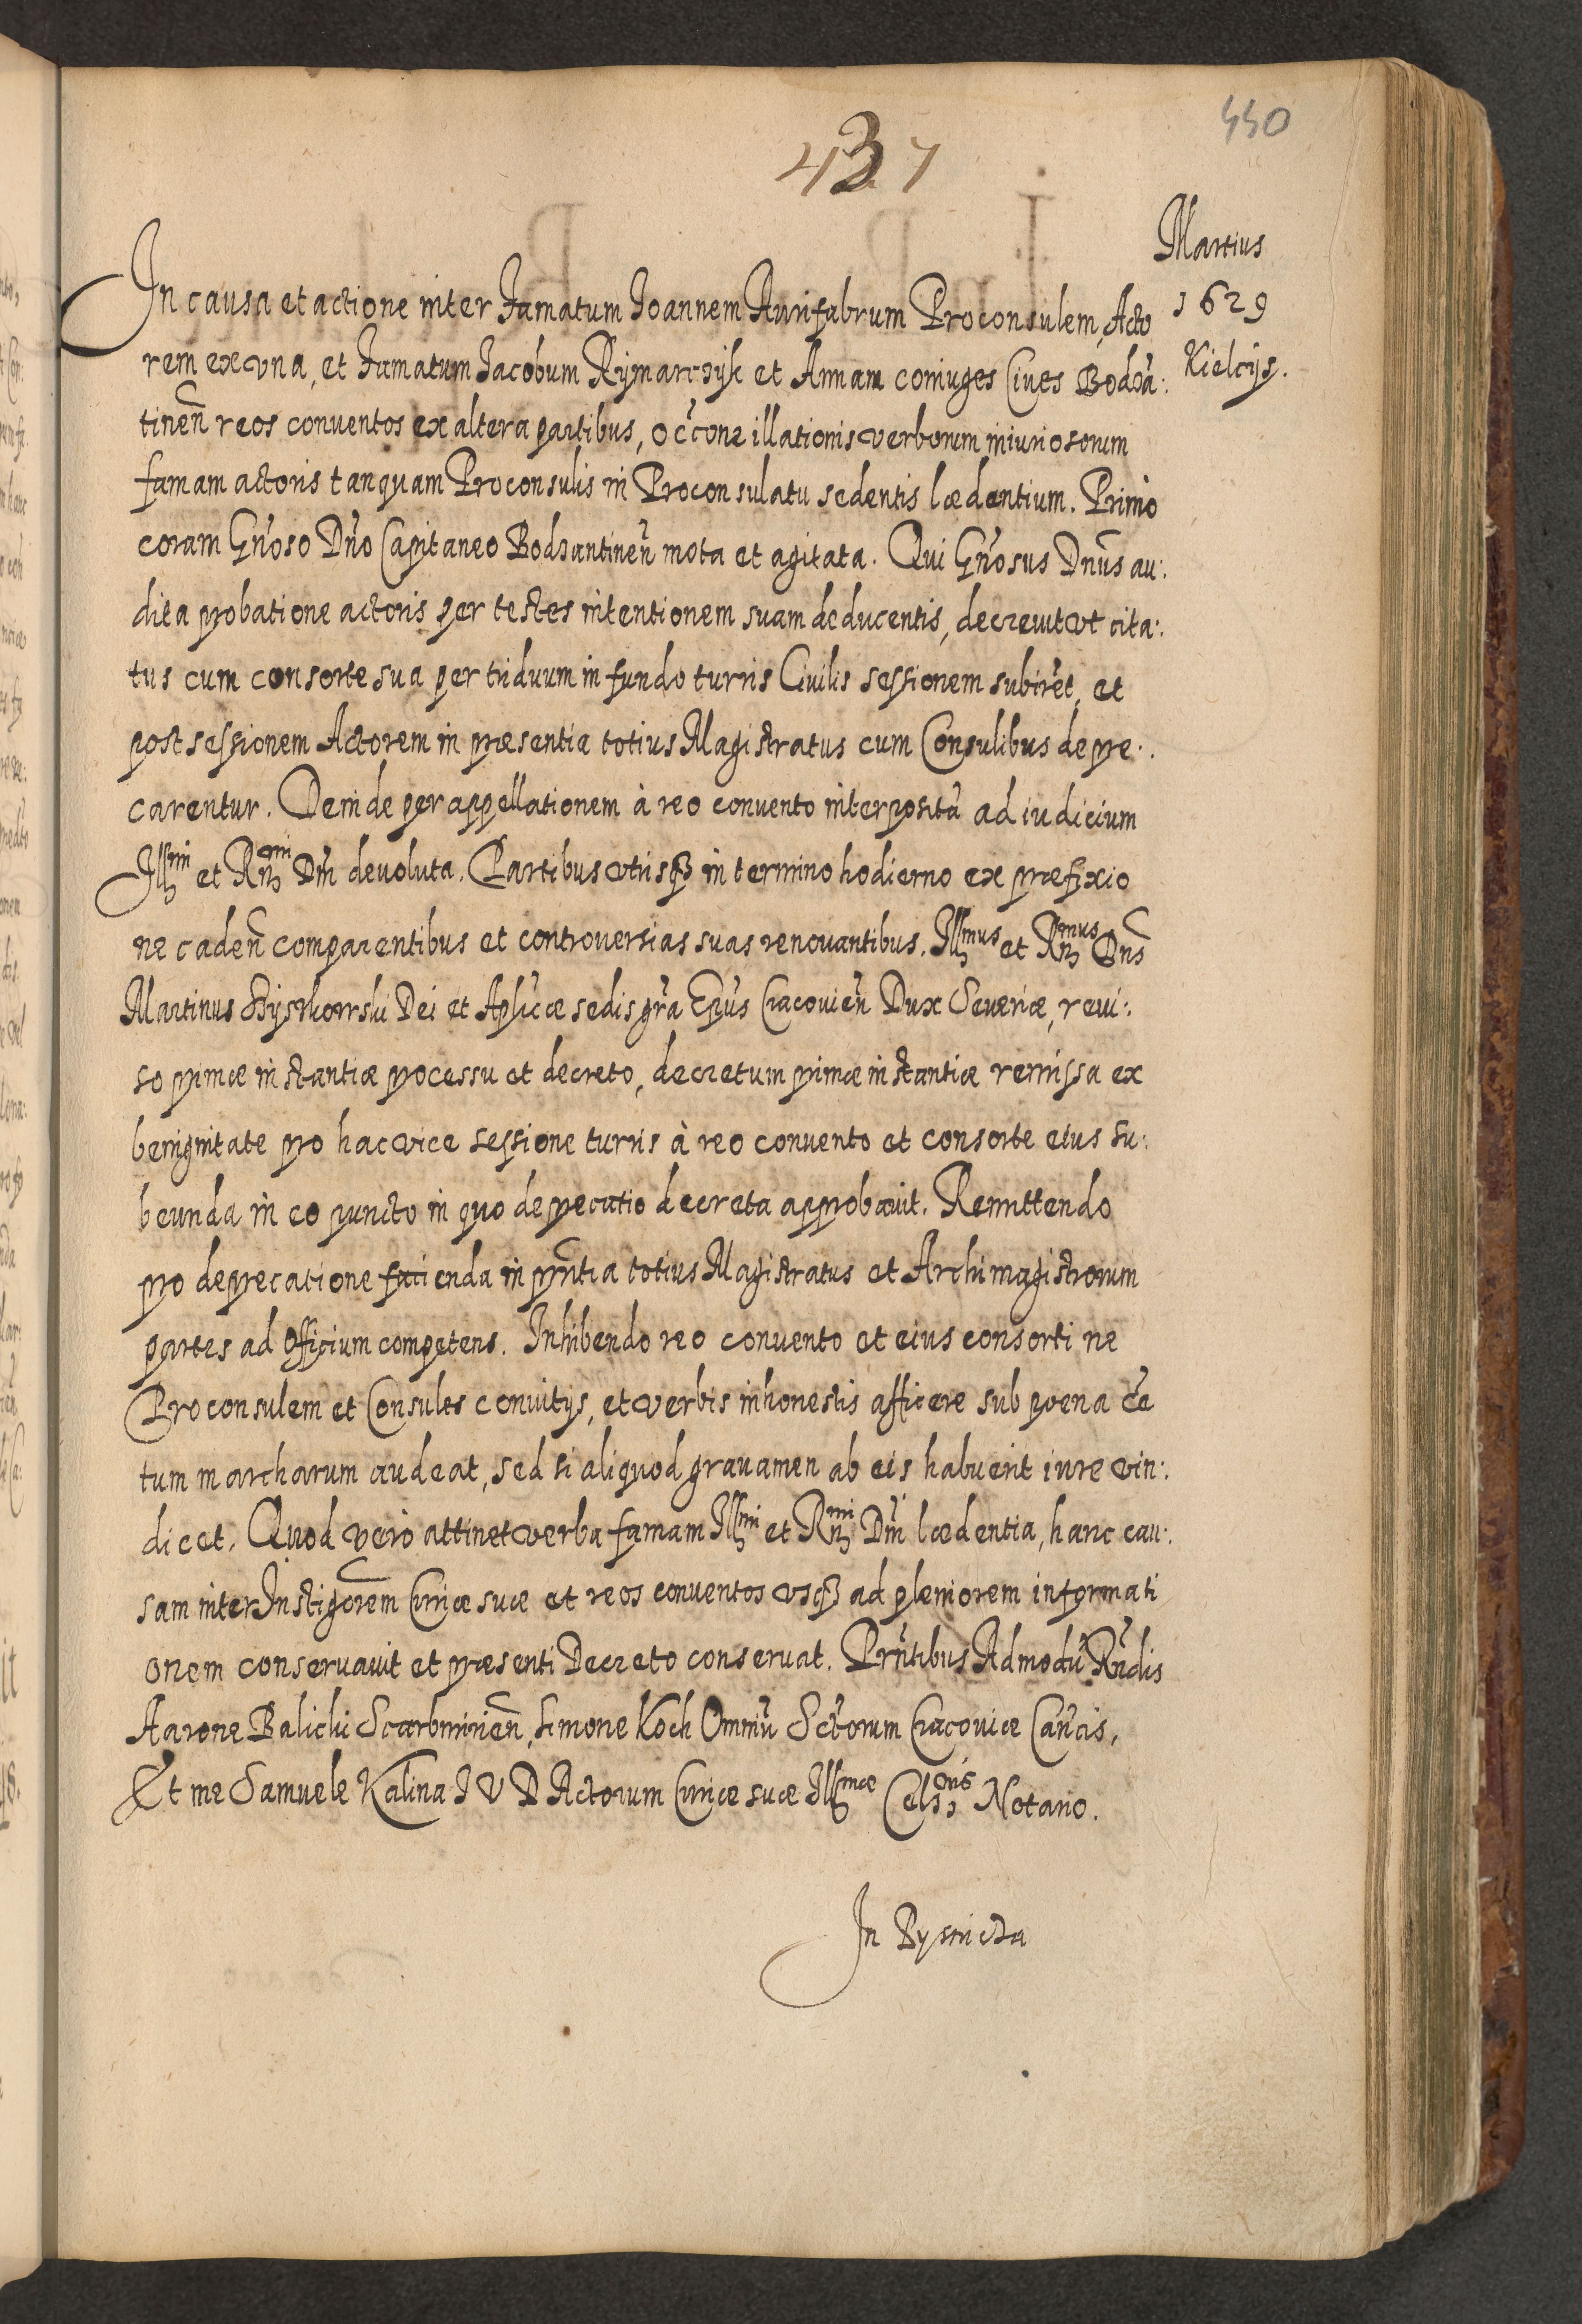 440
437
Martius
1629
Kielcijs.
In causa et actione inter Famatum Joannem Aurifabrum Proconsulem, Acto
rem ex vna, et Famatum Jacobum Rymarczyk et Annam coniuges Ciues Bodzā:
tineñ reos conuentos ex altera partibus, occ̃one illationis verborum iniuriosorum
famam actoris tanquam Proconsulis in Proconsulatu sedentis lædentium. Primò
coram Gñoso Dño Capitaneo Bodzantineñ mota et agitata. Qui Gñosus Dnũs au:
dita probatione actoris per testes intentionem suam deducentis, decreuit vt cita:
tus cum consorte sua per triduum in fundo turris Ciuilis sessionem subiret, et
post sessionem Actorem in præsentia totius Magistratus cum Consulibus depre:
carentur. Deinde per appellationem à reo conuento interpositā ad iudicium
Illmi et Rmi Dñi deuoluta. Partibus vtrisqȝ in termino hodierno ex præfixio
ne cadeñ comparentibus et controuersias suas renouantibus. Illmus et Rmus Dnũs
Martinus Szyszkowski Dei et Aplicæ sedis gr̃a Ep̃us Cracouieñ Dux Seueriæ, reui:
so primæ instantiæ processu et decreto, decretum primæ instantiæ remissa ex
benignitate pro hac vice sessione turris à reo conuento et consorte eius su:
beunda in eo puncto in quo deprecatio decreta approbauit. Remittendo
pro deprecatione facienda in pñtia totius Magistratus et Archimagistrorum
partes ad Officium competens. Inhibendo reo conuento et eius consorti ne
Proconsulem et Consules conuitijs, et verbis inhonestis afficere sub poena cẽ
tum marcharum audeat, sed si aliquod grauamen ab eis habuerit iure vin:
dicet. Quod verò attinet verba famam Illmi et Rmi Dñi lædentia, hanc cau:
sam inter Instigorẽm Curiæ suæ et reos conuentos vsqȝ ad pleniorem informati
onem conseruauit et præsenti Decreto conseruat. Prñtibus Admodũ Rñdis
Aarone Balicki Scarbimirieñ, Simone Koch Omniũ Sctorum Cracouiæ Cañcis,
Et me Samuele Kalina J V D Actorum Curiæ suæ Illmæ Celsnis Notario.
In Bystricza